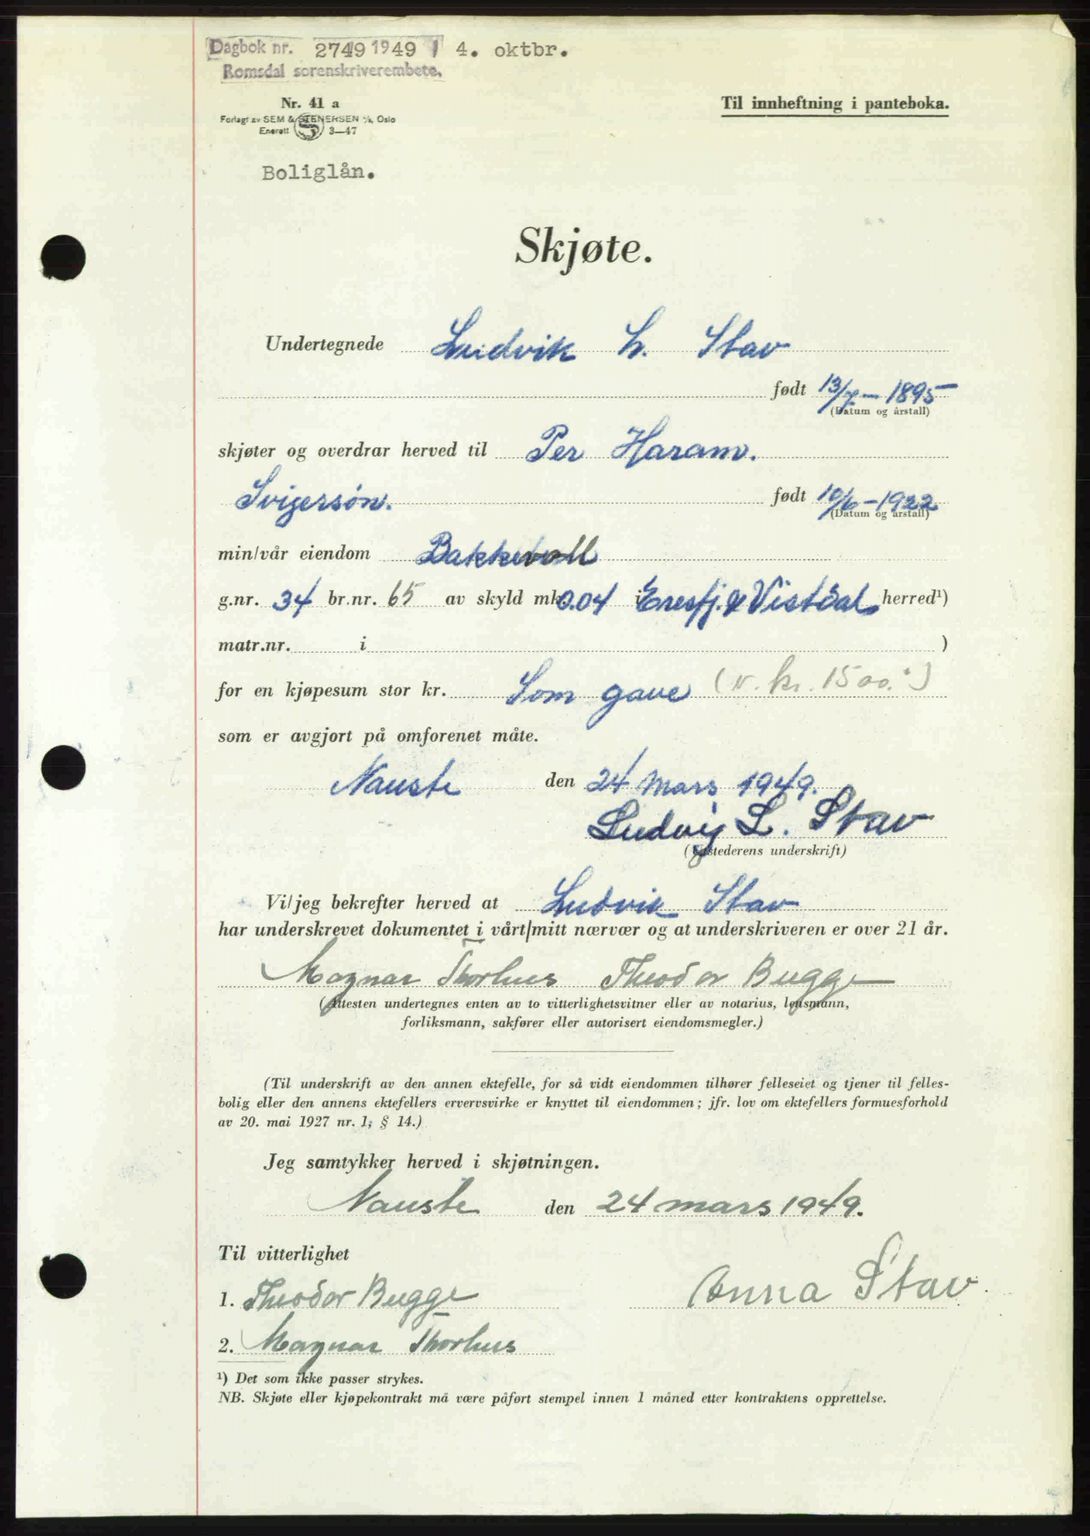 Dagbok nr. 2749 1949 / 4. oktbr.
Romsdal sorenskriverembete.
Nr. 41 a
Til innheftning i panteboka.
Forlagt av SEM & STENERSEN A/S, Oslo
Enerett S 3—47
Boliglån.
Skjøte.
Undertegnede Ludvik L. Stav
født 13/7 - 1895
(Datum og årstall)
skjøter og overdrar herved til Per Haram.
Svigersøn. født 10/6 - 1922
(Datum og årstall)
min/vår eiendom Bakkevoll
g.nr. 34 br.nr. 65 av skyld mk. 0.04 i Eresfj. & Vistdal herred¹)
matr.nr. i )
for en kjøpesum stor kr. Som gave (v. kr. 1500.-)
som er avgjort på omforenet måte.
Nauste den 24 mars 1949.
Ludvig L. Stav
(Utstederens underskrift)
Vi/jeg bekrefter herved at Ludvik Stav
har underskrevet dokumentet i vårt/mitt nærvær og at underskriveren er over 21 år.
Magnar Thorhus Theodor Bugge
(Attesten undertegnes enten av to vitterlighetsvitner eller av notarius, lensmann,
forliksmann, sakfører eller autorisert eiendomsmegler.)
(Til underskrift av den annen ektefelle, for så vidt eiendommen tilhører felleseiet og tjener til felles-
bolig eller den annens ektefellers ervervsvirke er knyttet til eiendommen; jfr. lov om ektefellers formuesforhold
av 20. mai 1927 nr. 1, § 14.)
Jeg samtykker herved i skjøtningen.
Nauste den 24 mars 1949.
Til vitterlighet
1. Theodor Bugge
Anna Stav.
2. Magnar Thorhus
¹) Det som ikke passer strykes.
NB. Skjøte eller kjøpekontrakt må være påført stempel innen 1 måned etter kontraktens opprettelse.